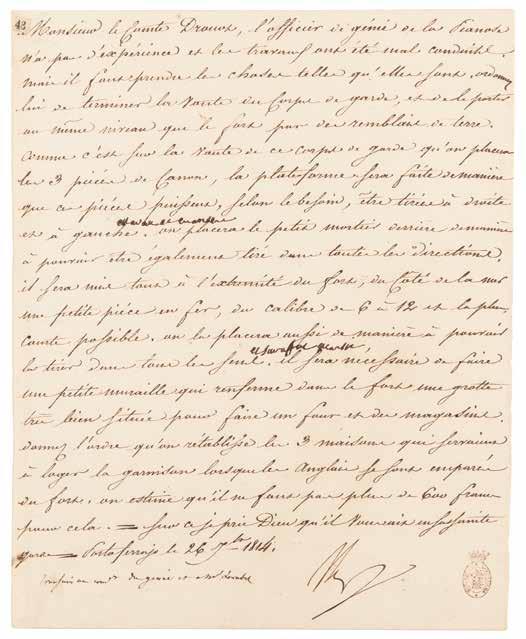 42
Monsieur le Comte Drouot, l'officier de génie de la Pianosa
n'a pas d'expérience et les travaux ont été mal conduits
mais il faut prendre les choses telles qu'elles sont. ordonnez
lui de terminer la voute du Corps de garde, et de le porter
au même niveau que le fort par des remblais de terre.
Comme c'est sur la voute de ce corps de garde qu'on placera
les 3 pièces de Canon, la plateforme sera faite de manière
que ces pièces puissent, selon le besoin, être tirées à droite
et à gauche. on placera le petit mortier derrière de manière
à pouvoir être également tiré dans toutes les directions.
il sera mis tout à l'extrémité du fort, du Côté de la mer
une petite pièce en fer, du calibre de 6 à 12 et la plus
courte possible. on la placera aussi de manière à pouvoir
la tirer dans tous les sens. il sera nécessaire de faire
une petite muraille qui renferme dans le fort une grotte
très bien située pour faire un four et des magasins.
donnez l'ordre qu'on rétablisse les 3 maisons qui servaient
à loger la garnison lorsque les Anglais se sont emparés
du fort. on estime qu'il ne faut pas plus de 600 francs
pour cela. = sur ce je prie Dieu qu'il vous ait en sa sainte
garde = Portoferrajo le 26 7bre 1814.